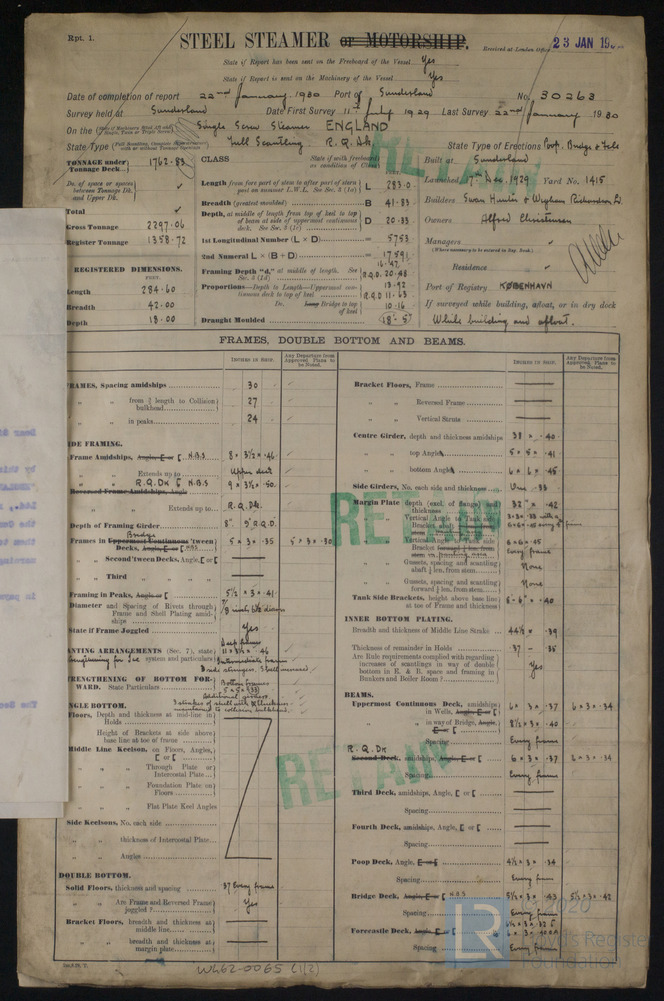 Rpt. 1.
STEEL STEAMER or MOTORSHIP.
Received at London Office
23 JAN 19
State if Report has been sent on the Freeboard of the Vessel Yes
State if Report is sent on the Machinery of the Vessel Yes
Date of completion of report 22nd January 1930 Port of Sunderland No. 30263
Survey held at Sunderland Date First Survey 11th July 1929 Last Survey 22nd January 1930
On the Single Screw Steamer ENGLAND
State Type Full Scantling R.Q.Dk
State Type of Erections Poop, Bridge & Fcle
TONNAGE under Tonnage Deck 1762.83
Do. of space or spaces between Tonnage Dk. and Upper Dk.
Total
Gross Tonnage 2297.06
Register Tonnage 1358.72
REGISTERED DIMENSIONS.
FEET.
Length 284.60
Breadth 42.00
Depth 18.00
CLASS
State if with freeboard as condition of Class
Length from fore part of stem to after part of stern post on summer L.W.L. See Sec. 2 (1a) L 283.0
Breadth (greatest moulded) B 41.83
Depth, at middle of length from top of keel to top of beam at side of uppermost continuous deck. See Sec. 2 (1c) D 20.33
1st Longitudinal Number (L × D) = 5753
2nd Numeral L × (B + D) = 17591
Framing Depth "d," at middle of length. See Sec. 2 (1d) R.Q.D. 20.48
Proportions—Depth to Length—Uppermost continuous deck to top of keel 13.92
R.Q.D 11.63
Do. Long Bridge to top of keel 10.16
Draught Moulded 18'-5"
Built at Sunderland
Launched 7th Dec. 1929 Yard No. 1415
Builders Swan Hunter & Wigham Richardson Ld
Owners Alfred Christensen
Managers
(Where necessary to be entered in Reg. Book)
Residence
Port of Registry KØBENHAVN
If surveyed while building, afloat, or in dry dock
While building and afloat.
FRAMES, DOUBLE BOTTOM AND BEAMS.
INCHES IN SHIP.
Any Departure from Approved Plans to be Noted.
INCHES IN SHIP.
Any Departure from Approved Plans to be Noted.
FRAMES, Spacing amidships 30
" " from ⅗ length to Collision bulkhead 27
" " in peaks 24
SIDE FRAMING.
Frame Amidships, Angle, E or [ N.B.S 8 × 3½ × .46
" " Extends up to Upper deck
" " R.Q.Dk [ N.B.S 9 × 3½ × .50
Reversed Frame Amidships, Angle
" " Extends up to R.Q.Dk.
Depth of Framing Girder 8" 9" R.Q.D.
Bridge
Frames in Uppermost Continuous 'tween Decks, Angle, E or [ 5 × 3 × .35 5 × 3 × .30
" Second 'tween Decks, Angle, [ or [
" Third " " " "
Framing in Peaks, Angle or [ 5½ × 3 × .41
Diameter and Spacing of Rivets through Frame and Shell Plating amidships
State if Frame Joggled Yes
PANTING ARRANGEMENTS (Sec. 7), state system and particulars
STRENGTHENING OF BOTTOM FORWARD. State Particulars
SINGLE BOTTOM.
Floors, Depth and thickness at mid-line in Holds
" Height of Brackets at side above base line at toe of frame
Middle Line Keelson, on Floors, Angles, [ or [
" " Through Plate or Intercostal Plate
" " Foundation Plate on Floors
" " Flat Plate Keel Angles
Side Keelsons, No. each side
" " thickness of Intercostal Plate
" " Angles
DOUBLE BOTTOM.
Solid Floors, thickness and spacing .37 Every frame
" " Are Frame and Reversed Frame joggled? Yes
Bracket Floors, breadth and thickness at middle line
" " breadth and thickness at margin plate
Bracket Floors, Frame
" " Reversed Frame
" " Vertical Struts
Centre Girder, depth and thickness amidships 38 × .40
" " top Angles 5 × 5 × .41
" " bottom Angles 6 × 6 × .45
Side Girders, No. each side and thickness One .33
Margin Plate depth (excl. of flange) and thickness 32" × .42
6 × 6 × .45
Every frame
" " Gussets, spacing and scantling abaft ¼ len. from stem None
" " Gussets, spacing and scantling forward ¼ len. from stem None
Tank Side Brackets, height above base line at toe of Frame and thickness .40
INNER BOTTOM PLATING.
Breadth and thickness of Middle Line Strake 44½ × .39
Thickness of remainder in Holds .37 - .35
Are Rule requirements complied with regarding increases of scantlings in way of double bottom in E. & B. space and framing in Bunkers and Boiler Room? Yes
BEAMS.
Uppermost Continuous Deck, amidships in Wells, Angle, E or [ 6 × 3 × .37 6 × 3 × .34
" " in way of Bridge, Angle, E or [ 8½ × 3 × .40
Spacing Every frame
R.Q.Dk
Second Deck, amidships, Angle, E or [ 6 × 3 × .37 6 × 3 × .34
Spacing Every frame
Third Deck, amidships, Angle, [ or [
Spacing
Fourth Deck, amidships, Angle, [ or [
Spacing
Poop Deck, Angle, E or [ 4½ × 3 × .34
Spacing Every frame
Bridge Deck, Angle, E or [ N.B.S 5½ × 3 × .43 5½ × 3 × .42
Spacing Every frame
Forecastle Deck, Angle, E or [
Spacing Every frame
RETAIN
RETAIN
RETAIN
W462-0065 (1/2)
LR
© 2020
Lloyds Register
Foundation